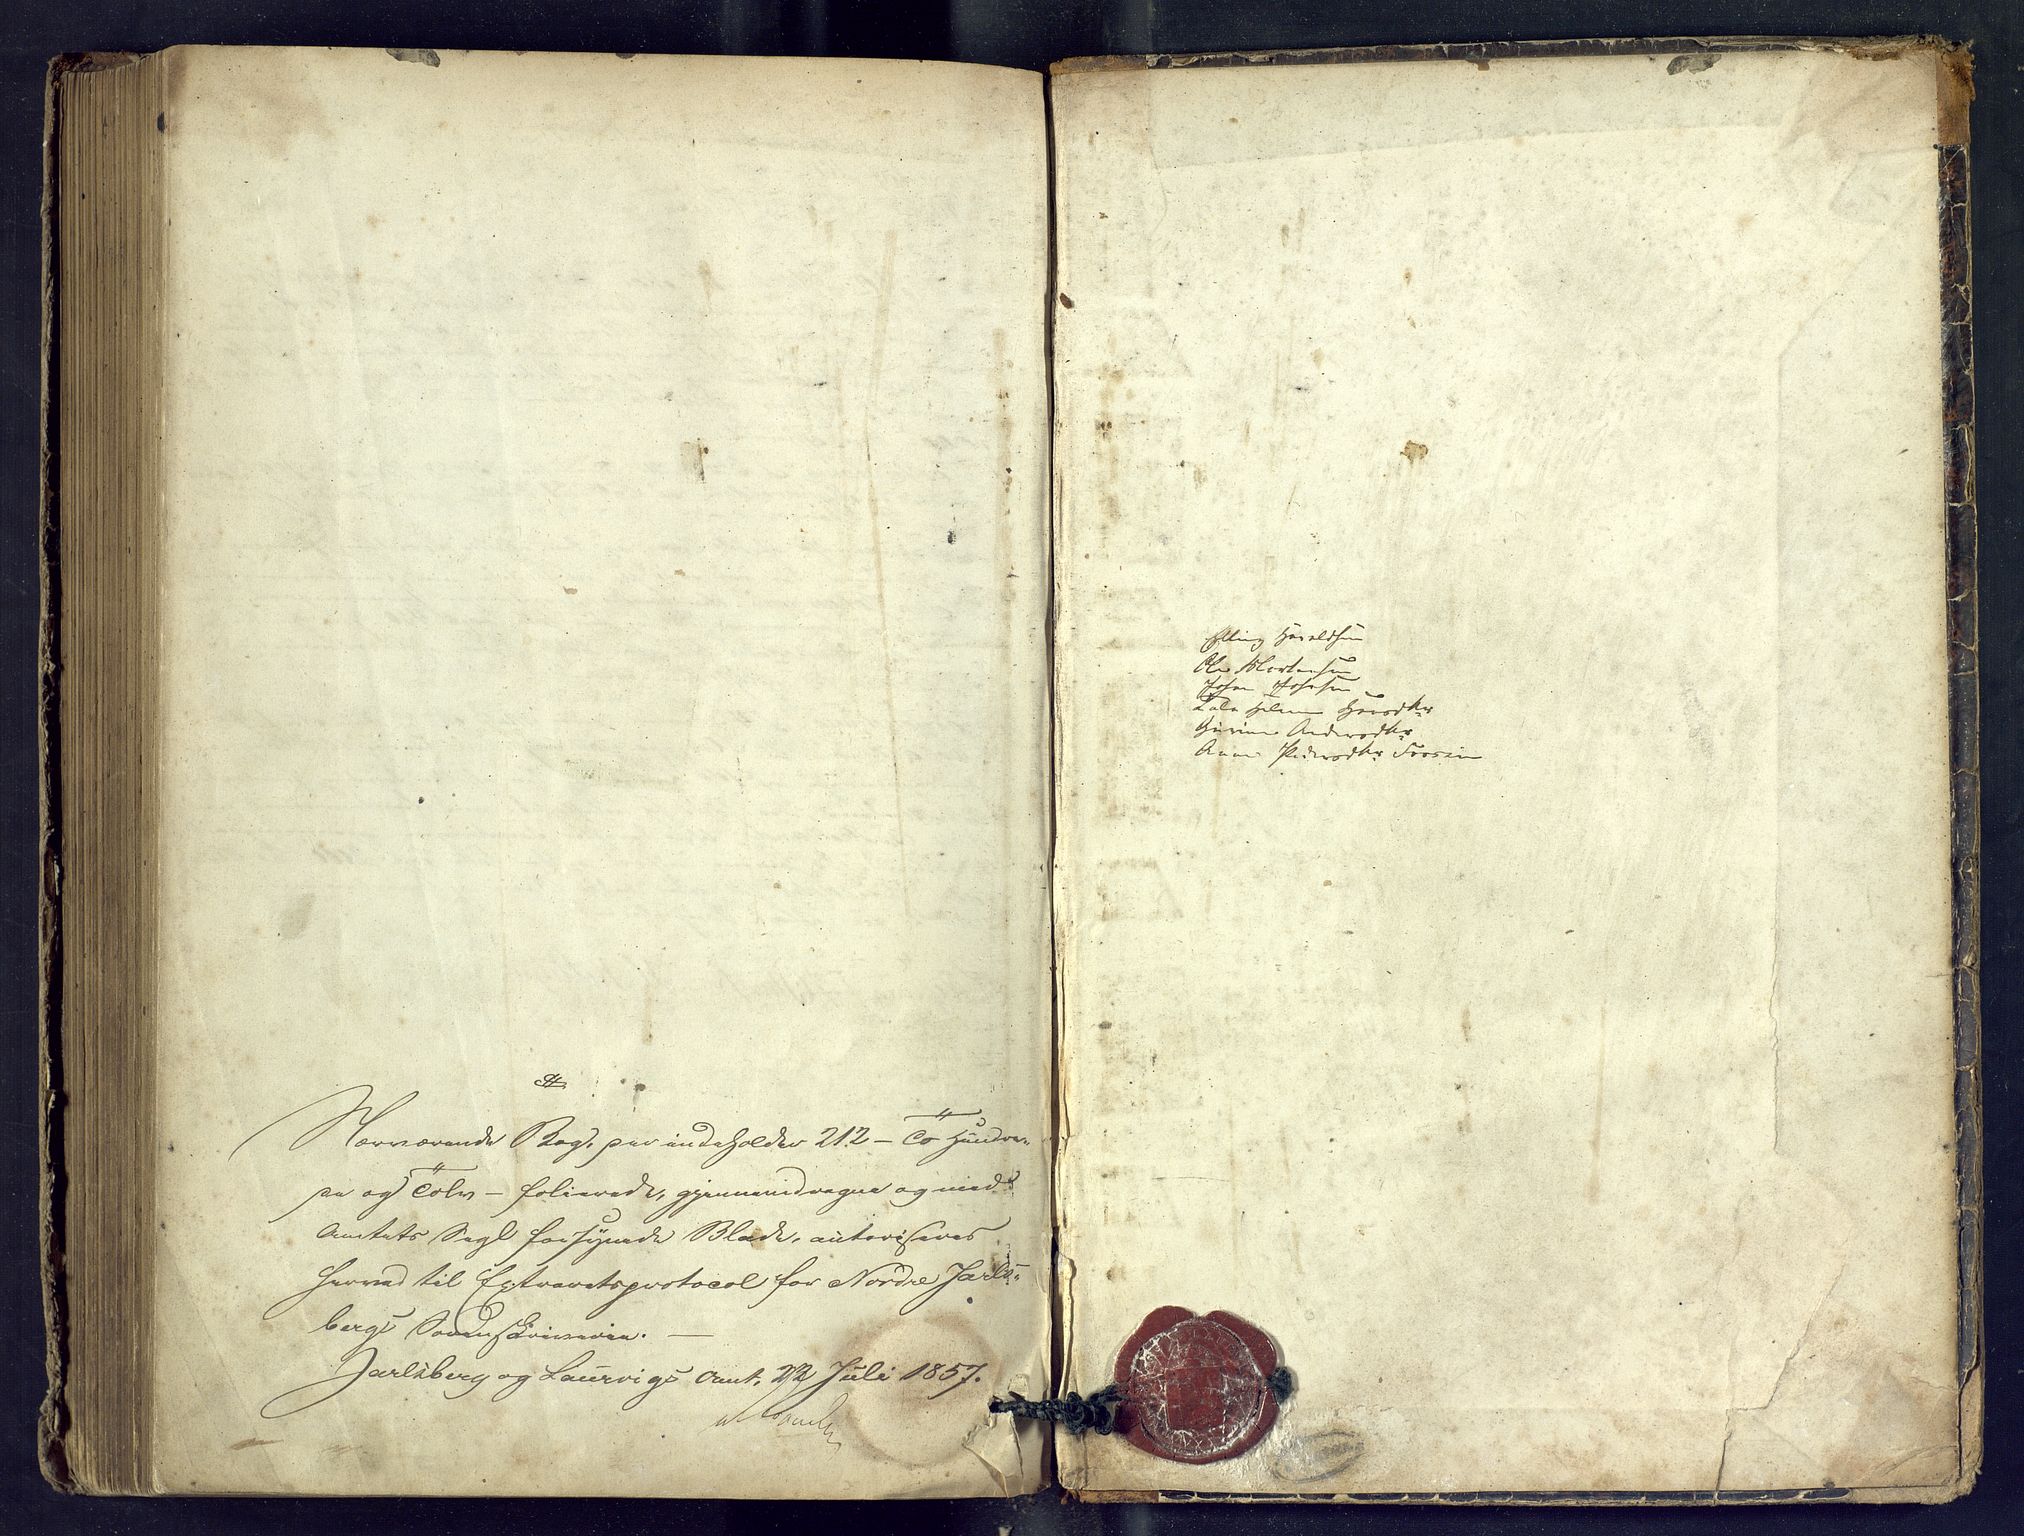 Nærværende Bog, der indeholder 212 – To Hundre-
de og Tolv – folierede, gjennemdragne og med
Amtets Segl forsynede Blade, autoriseres
herved til Extraretsprotocol for Nordre Jarls-
bergs Sorenskriverie. –
Jarlsberg og Laurvigs Amt, 22 Juli 1857.
Elling Haraldsen
Ole Mortensen
Johan Johnsen
Helene
Andersdtr
Anne Pedersdtr